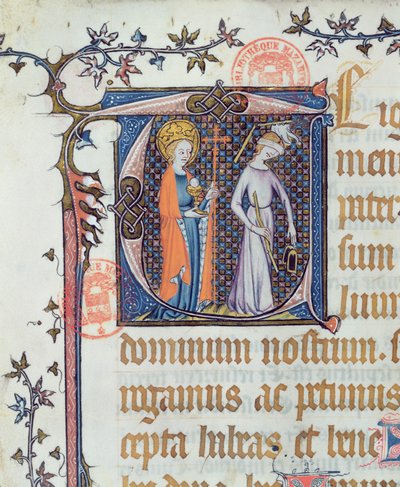 BIBLIOTHÈQUE MAZA
TEig
men
pater
sum
lium
dominum nostrum. S
rogamus ac petimus
cepta habeas et bene